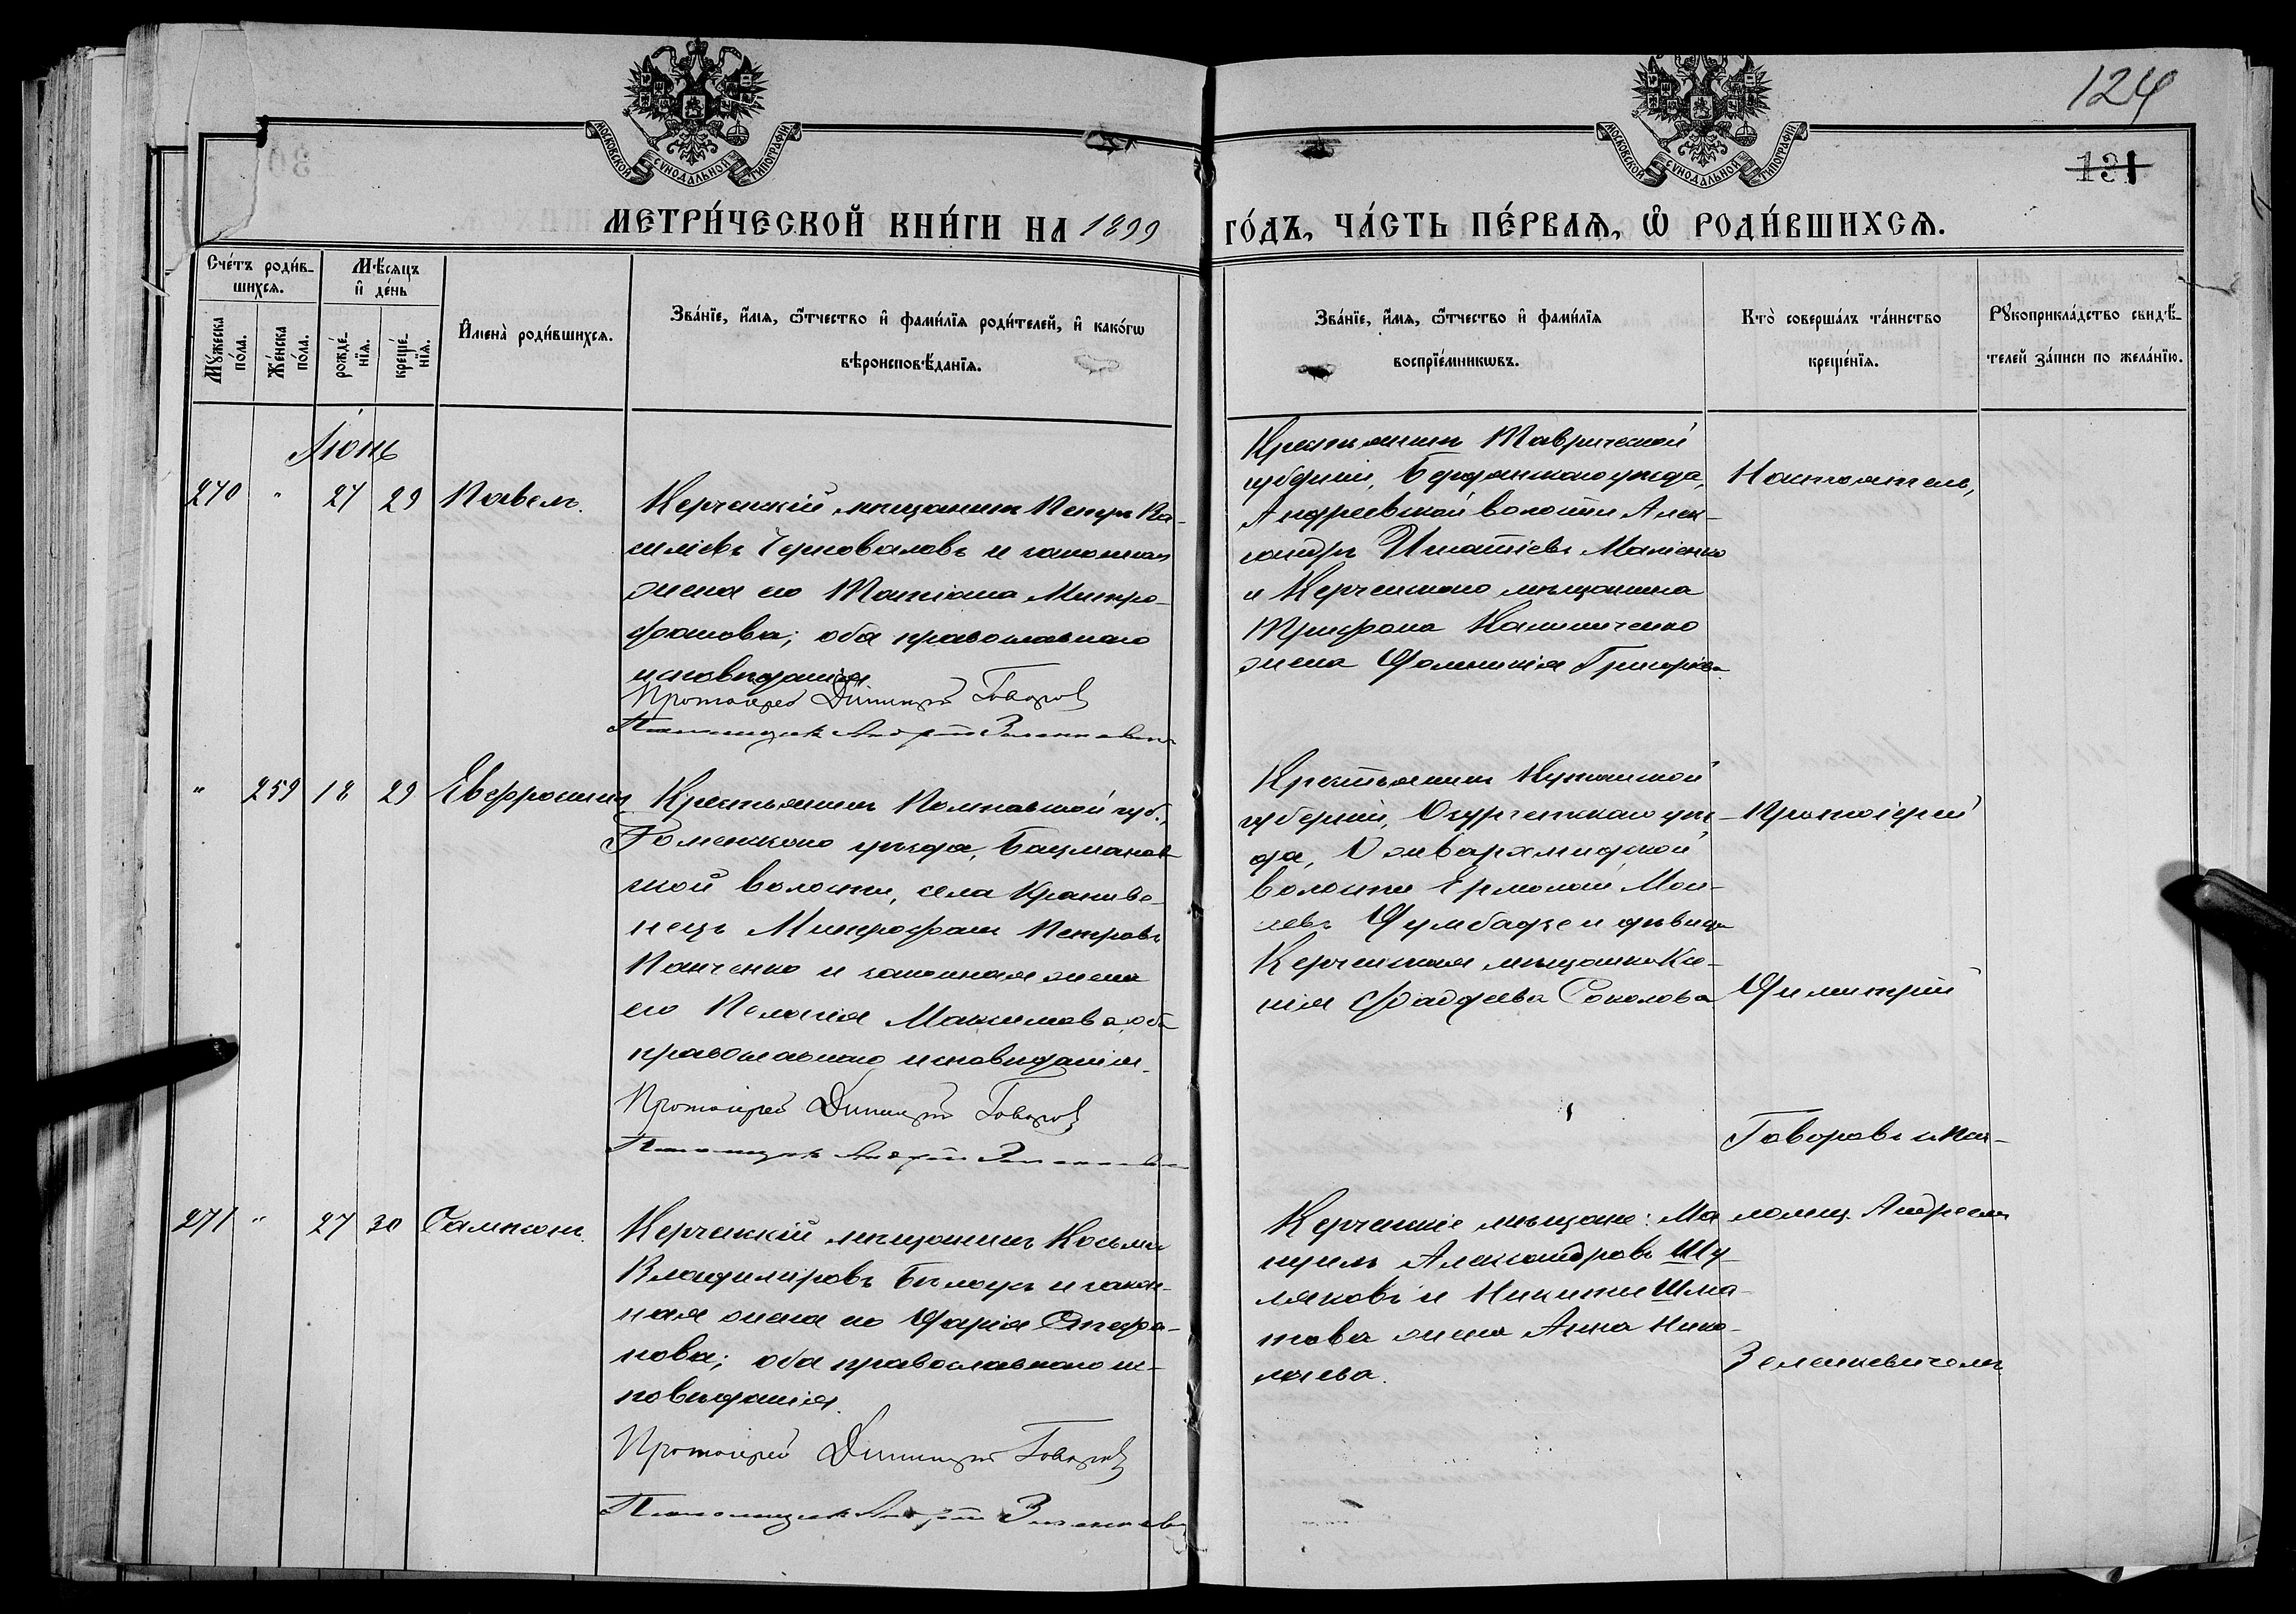 124
131
МОСКОВСКОЙ СѴНОДАЛЬНОЙ ТИПОГРАФІИ
МОСКОВСКОЙ СѴНОДАЛЬНОЙ ТИПОГРАФІИ
МЕТРИ́ЧЕСКОЙ КНИ́ГИ НА 1899 ГО́ДЪ, ЧА́СТЬ ПЕ́РВАѦ, Ѡ҆ РОДИ́ВШИХСѦ.
Сче́тъ роди́в-
шихсѧ.
Мѣ́сяцъ
и҆ де́нь
Мꙋ́жеска
по́ла.
Же́нска
по́ла.
рожде́-
нїѧ.
креще́-
нїѧ.
И҆мена̀ роди́вшихсѧ.
Зва́нїе, и҆́мѧ, ѻ҆́тчество и҆ фами́лїѧ роди́телей, и҆ како́гѡ
вѣроисповѣ́данїѧ.
Зва́нїе, и҆́мѧ, ѻ҆́тчество и҆ фами́лїѧ
воспрїе́мникѡвъ.
Кто̀ соверша́лъ та́инство
креще́нїѧ.
Рꙋкоприкла́дство свидѣ́-
телей за́писи по жела́нїю.
Іюнь
270 " 27 29 Павелъ.
Керченскій мѣщанинъ Петръ Ва-
сильевъ Черноваловъ и законная
жена его Татіана Митро-
фанова; оба православнаго
исповѣданія
Протоіерей Димитрій Говоровъ
Псаломщикъ Андрей Зеленкевичъ
Крестьянинъ Таврической
губерніи, Бердянскаго уѣзда,
Андреевской волости Алек-
сандръ Игнатіевъ Маліенко
и Керченскаго мѣщанина
Трифона Калиниченко
жена Домникія Григорьева.
Настоятель,
" 259 18 29 Евфросинія
Крестьянинъ Полтавской губ.,
Роменскаго уѣзда, Бацманов-
ской волости, села Крапиве-
нецъ Митрофанъ Петровъ
Панченко и законная жена
его Пелагія Максимова, оба
православнаго исповѣданія.
Протоіерей Димитрій Говоровъ
Псаломщикъ Андрей Зеленкевичъ
Крестьянинъ Кутаиской
губерніи, Озургетскаго уѣз-
да,
волости Ермолай Мои-
сеевъ Думбадзе и дѣвица
Керченская мѣщанка Ксе-
нія Фаддеева Соколова
Протоіерей
Димитрій
Говоровъ и пса-
271 " 27 30 Сампсонъ.
Керченскій мѣщанинъ Косьма
Владиміровъ Бѣлоусъ и закон-
ная жена его Дарія Стефа-
нова; оба православнаго ис-
повѣданія.
Протоіерей Димитрій Говоровъ
Псаломщикъ Андрей Зеленкевичъ
Керченскіе мѣщане: Ма-
нуилъ Александровъ Шу-
ляковъ и Никиты Шма-
това жена Анна Нико-
лаева.
ломщ. Андреемъ
Зеленкевичемъ